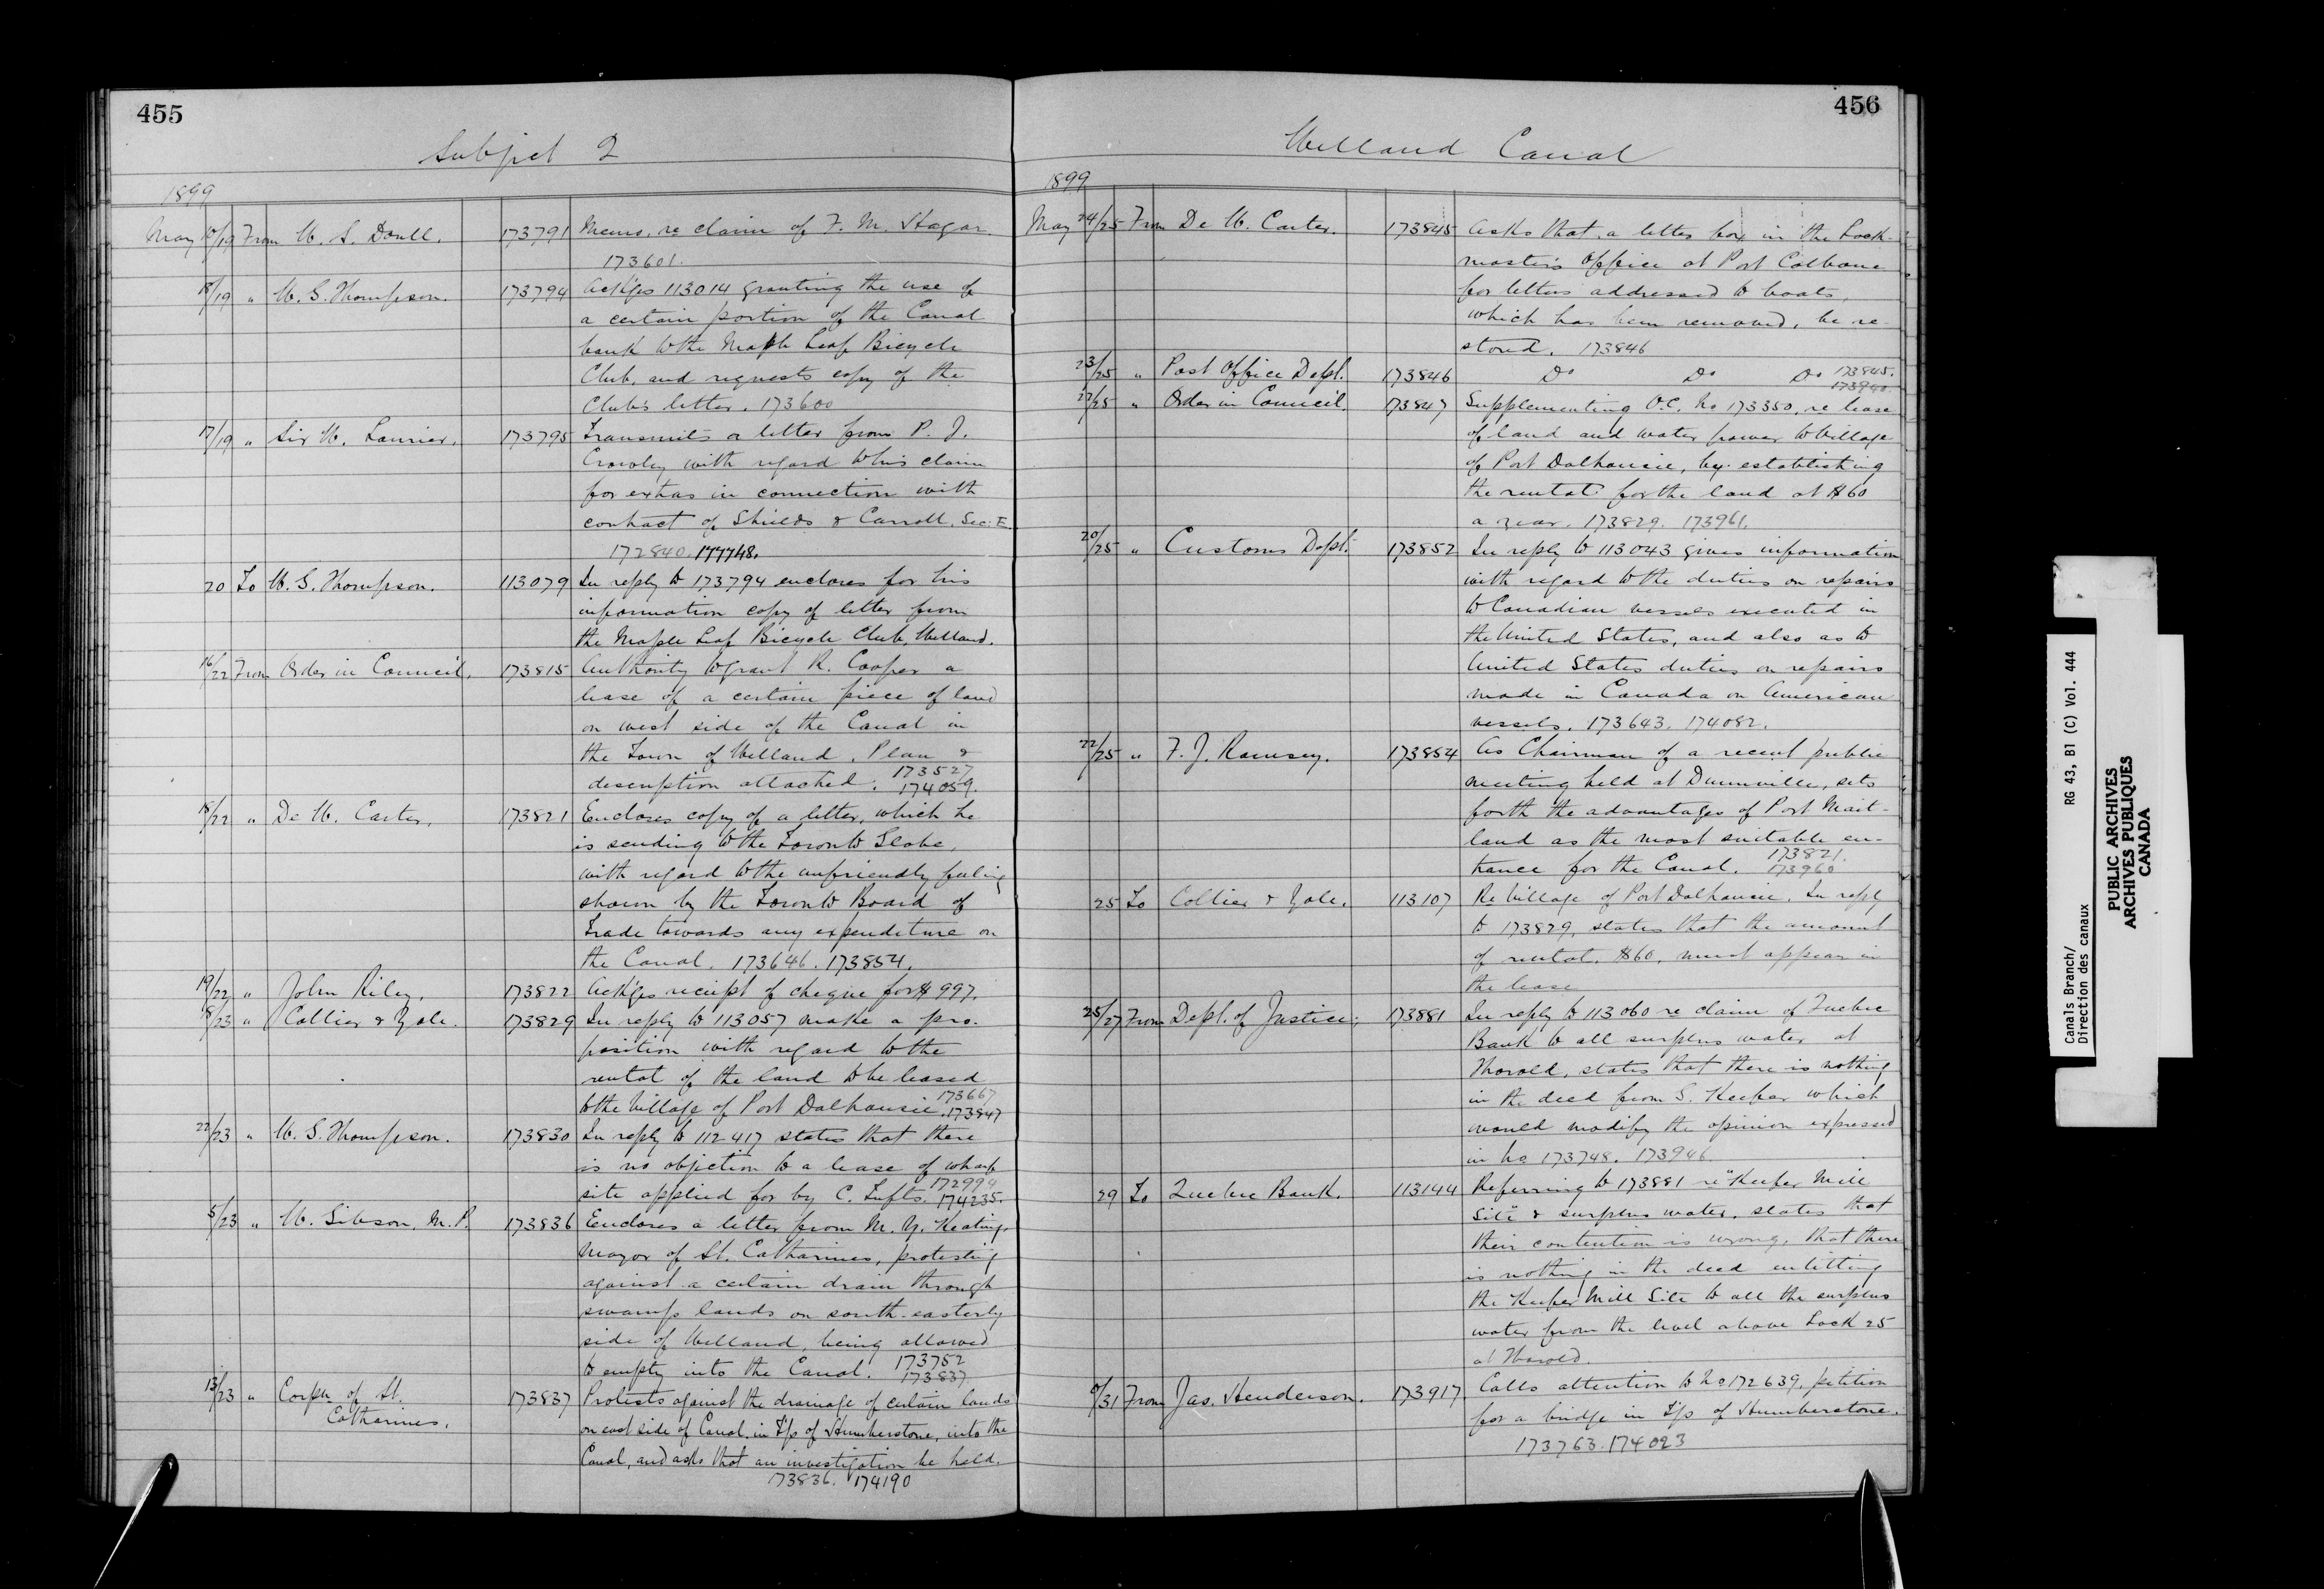 455
Subject 2
1899
May 10/19 From W. S. Doull. 173791 Memo. re claim of F. M. Hagar.
173601.
18/19 " W. G. Thompson. 173794 Ack'ges 113014 granting the use of
a certain portion of the Canal
bank to the Maple Leaf Bicycle
Club, and requests copy of the
Club's letter. 173600
17/19 " Sir W. Laurier. 173795 Transmits a letter from P. J.
Crowley with regard to his claim
for extras in connection with
contract of Shields & Carroll, Sec: E.
172840. 177748.
20 To W. G. Thompson. 113079 In reply to 173794 encloses for his
information copy of letter from
the Maple Leaf Bicycle Club, Welland.
16/22 From Order in Council. 173815 Authority to grant R. Cooper a
lease of a certain piece of land
on west side of the Canal in
the Town of Welland. Plan &
description attached. 173527
174059.
18/22 " De W. Carter. 173821 Encloses copy of a letter, which he
is sending to the Toronto Globe,
with regard to the unfriendly feeling
shown by the Toronto Board of
Trade towards any expenditure on
the Canal. 173646. 173854.
19/22 " John Riley. 173822 Ack'ges receipt of cheque for $997.
18/23 " Collier & Yale. 173829 In reply to 113057 make a pro-
position with regard to the
rental of the land to be leased
to the Village of Port Dalhousie. 173667
173847
22/23 " W. G. Thompson. 173830 In reply to 112417 states that there
is no objection to a lease of wharf
site applied for by C. Tufts. 172994
174235.
5/23 " W. Gibson, M.P. 173836 Encloses a letter from M. Y. Keating,
Mayor of St. Catharines, protesting
against a certain drain through
swamp lands on south-easterly
side of Welland, being allowed
to empty into the Canal. 173752
173837.
13/23 " Corpn of St. Catharines. 173837 Protests against the drainage of certain lands
on east side of Canal, in T'p of Humberstone, into the
Canal, and asks that an investigation be held.
173836. 174190
456
Welland Canal
1899
May 24/25 From De W. Carter. 173845 Asks that a letter box in the Lock-
master's Office at Port Colborne
for letters addressed to boats,
which has been removed, be re-
stored. 173846
23/25 " Post Office Dept. 173846 Do Do Do 173845.
173940.
22/25 " Order in Council. 173847 Supplementing O.C. No 173350, re lease
of land and water power to Village
of Port Dalhousie, by establishing
the rental for the land at $60
a year. 173829. 173961.
20/25 " Customs Dept. 173852 In reply to 113043 gives information
with regard to the duties on repairs
to Canadian vessels executed in
the United States, and also as to
United States duties on repairs
made in Canada on American
vessels. 173643. 174082.
22/25 " F. J. Ramsey. 173854 As Chairman of a recent public
meeting held at Dunnville, sets
forth the advantages of Port Mait-
land as the most suitable en-
trance for the Canal. 173821.
173960
25 To Collier & Yale. 113107 Re Village of Port Dalhousie. In reply
to 173829, states that the amount
of rental, $60, must appear in
the lease
25/27 From Dept. of Justice. 173881 In reply to 113060 re claim of Quebec
Bank to all surplus water at
Thorold, states that there is nothing
in the deed from G. Keefer which
would modify the opinion expressed
in No 173748. 173946
29 To Quebec Bank. 113144 Referring to 173881 re "Keefer Mill
Site" & surplus water, states that
their contention is wrong, that there
is nothing in the deed entitling
the Keefer Mill Site to all the surplus
water from the level above Lock 25
at Thorold.
/31 From Jas. Henderson. 173917 Calls attention to No 172639, petition
for a bridge in T'p of Humberstone.
173763. 174023
Canals Branch/ RG 43, B1 (C) Vol. 444
Direction des canaux
PUBLIC ARCHIVES
ARCHIVES PUBLIQUES
CANADA